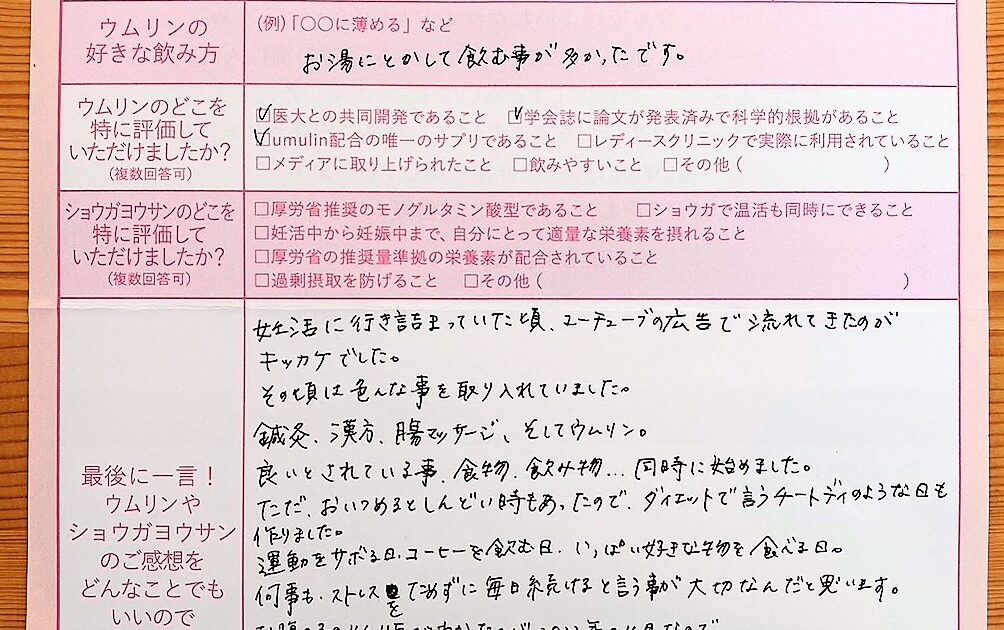 ウムリンの
好きな飲み方
(例)「〇〇に薄める」など
お湯にとかして飲む事が多かったです。
ウムリンのどこを
特に評価して
いただけましたか?
(複数回答可)
☑医大との共同開発であること ☑学会誌に論文が発表済みで科学的根拠があること
☑umulin配合の唯一のサプリであること □レディースクリニックで実際に利用されていること
□メディアに取り上げられたこと □飲みやすいこと □その他( )
ショウガヨウサンのどこを
特に評価して
いただけましたか?
(複数回答可)
□厚労省推奨のモノグルタミン酸型であること □ショウガで温活も同時にできること
□妊活中から妊娠中まで、自分にとって適量な栄養素を摂れること
□厚労省の推奨量準拠の栄養素が配合されていること
□過剰摂取を防げること □その他( )
最後に一言!
ウムリンや
ショウガヨウサン
のご感想を
どんなことでも
いいので
妊活に行き詰まっていた頃、ユーチューブの広告で流れてきたのが
キッカケでした。
その頃は色んな事を取り入れていました。
鍼灸、漢方、腸マッサージ、そしてウムリン。
良いとされている事、食物、飲み物…同時に始めました。
ただ、おいつめるとしんどい時もあったので、ダイエットで言うチートデイのような日も
作りました。
運動をサボる日、コーヒーを飲む日、いっぱい好きな物を食べる日。
何事も、ストレスをためずに毎日続けると言う事が大切なんだと思います。